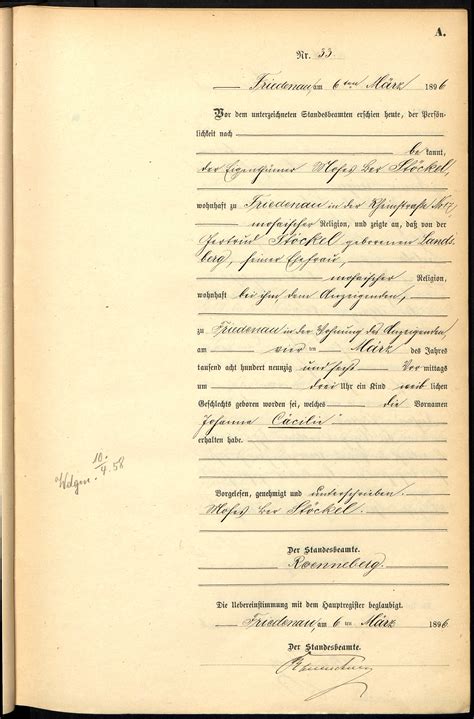 A.
Nr. 33.
Friedenau, am 6ten März 1896
Vor dem unterzeichneten Standesbeamten erschien heute, der Persön-
lichkeit nach
be kannt,
der Eigenthümer Moses Ber Stöckel,
wohnhaft zu Friedenau in der Rheinstraße No 17,
mosaischer Religion, und zeigte an, daß von der
Gertrud Stöckel geborenen Lands-
berg, seiner Ehefrau,
mosaischer Religion,
wohnhaft bei ihm dem Anzeigenden,
zu Friedenau in der Wohnung des Anzeigenden,
am vier ten März des Jahres
tausend acht hundert neunzig und sechs Vor mittags
um drei Uhr ein Kind weib lichen
Geschlechts geboren worden sei, welches die Vornamen
Johanna Cäcilie
erhalten habe.
10.
4. 58
Vorgelesen, genehmigt und unterschrieben.
Moses Ber Stöckel.
Der Standesbeamte.
Roenneberg.
Die Uebereinstimmung mit dem Hauptregister beglaubigt.
Friedenau, am 6ten März 1896
Der Standesbeamte.
Roenneberg